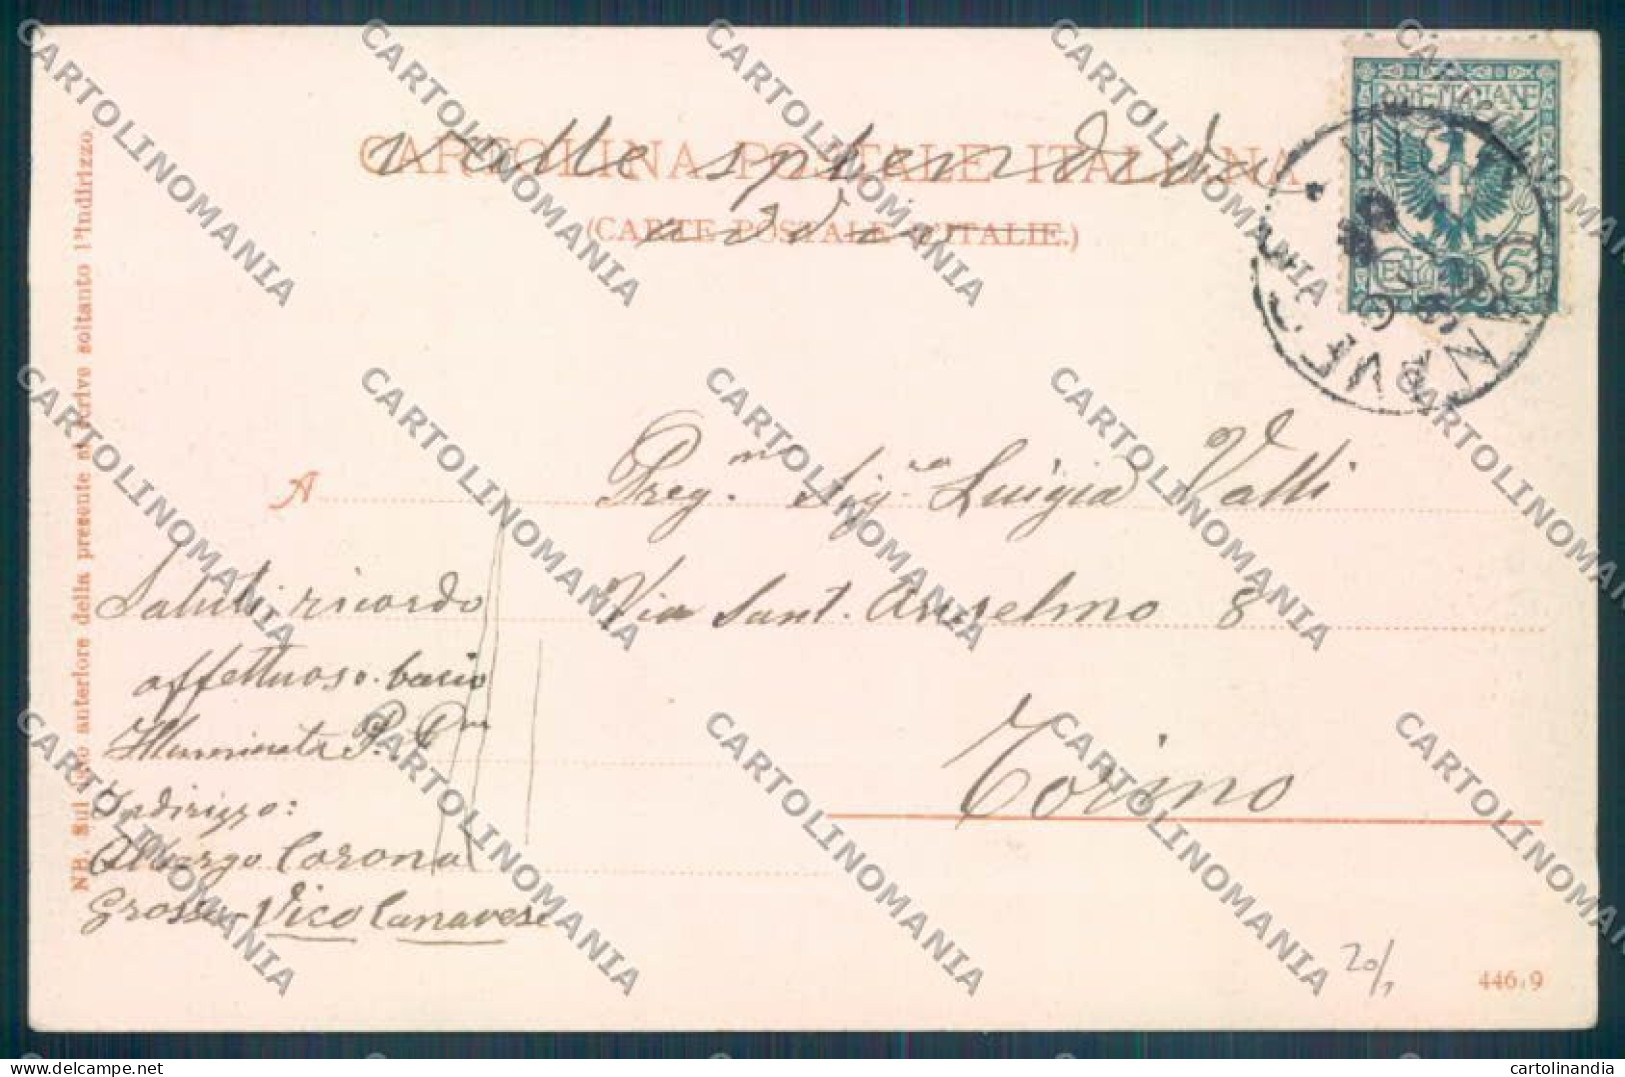 CARTOLINA POSTALE ITALIANA
(CARTE POSTALE D'ITALIE.)
Valle splendida
addio
POSTE ITALIANE
A
Preg.ma Sig.ra Luigia Valli
Via Sant. Anselmo 8
Torino
Saluti ricordo
affettuoso bacio
Indirizzo:
Albergo Corona
Grosso - Vico Canavese
NB. Sul lato anteriore della presente si scrive soltanto l'indirizzo.
20/
446,9
CARTOLINOMANIA
delcampe.net
cartolinandia